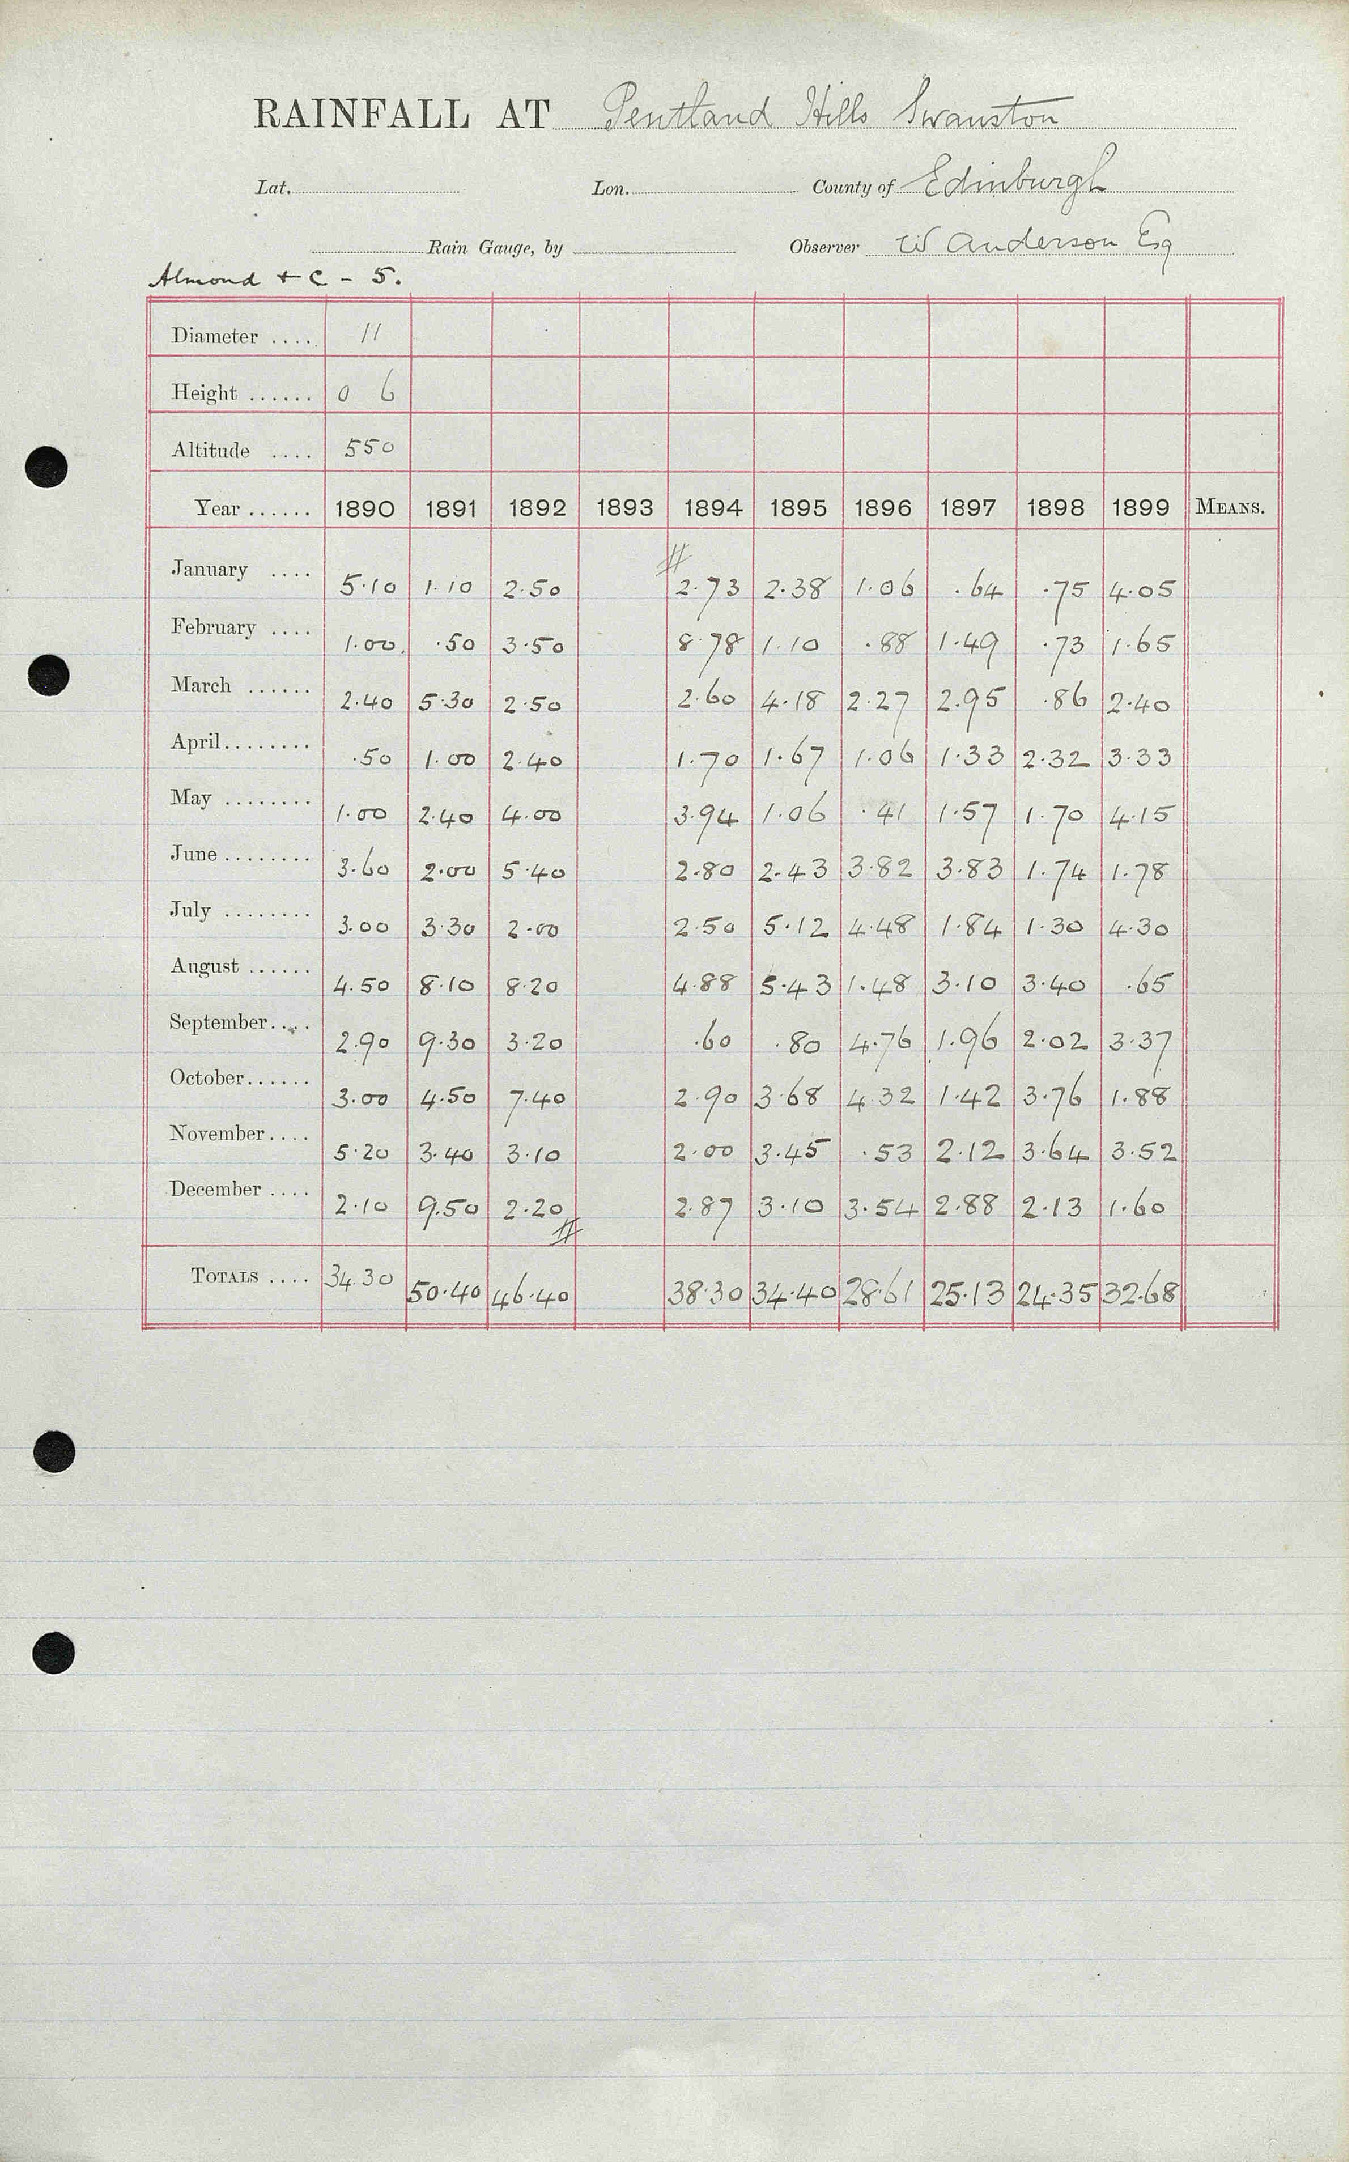 RAINFALL AT Pentland Hills Swanston
Lat. Lon. County of Edinburgh
Rain Gauge, by Observer W Anderson Esq
Almond + C - 5.
Diameter .... 11
Height ...... 0 6
Altitude .... 550
Year ...... 1890 1891 1892 1893 1894 1895 1896 1897 1898 1899 MEANS.
#
January .... 5.10 1.10 2.50 2.73 2.38 1.06 .64 .75 4.05
February .... 1.00 .50 3.50 8.78 1.10 .88 1.49 .73 1.65
March ...... 2.40 5.30 2.50 2.60 4.18 2.27 2.95 .86 2.40
April ........ .50 1.00 2.40 1.70 1.67 1.06 1.33 2.32 3.33
May ........ 1.00 2.40 4.00 3.94 1.06 .41 1.57 1.70 4.15
June ........ 3.60 2.00 5.40 2.80 2.43 3.82 3.83 1.74 1.78
July ........ 3.00 3.30 2.00 2.50 5.12 4.48 1.84 1.30 4.30
August ...... 4.50 8.10 8.20 4.88 5.43 1.48 3.10 3.40 .65
September .... 2.90 9.30 3.20 .60 .80 4.76 1.96 2.02 3.37
October ...... 3.00 4.50 7.40 2.90 3.68 4.32 1.42 3.76 1.88
November .... 5.20 3.40 3.10 2.00 3.45 .53 2.12 3.64 3.52
December .... 2.10 9.50 2.20 2.87 3.10 3.54 2.88 2.13 1.60
#
TOTALS .... 34.30 50.40 46.40 38.30 34.40 28.61 25.13 24.35 32.68